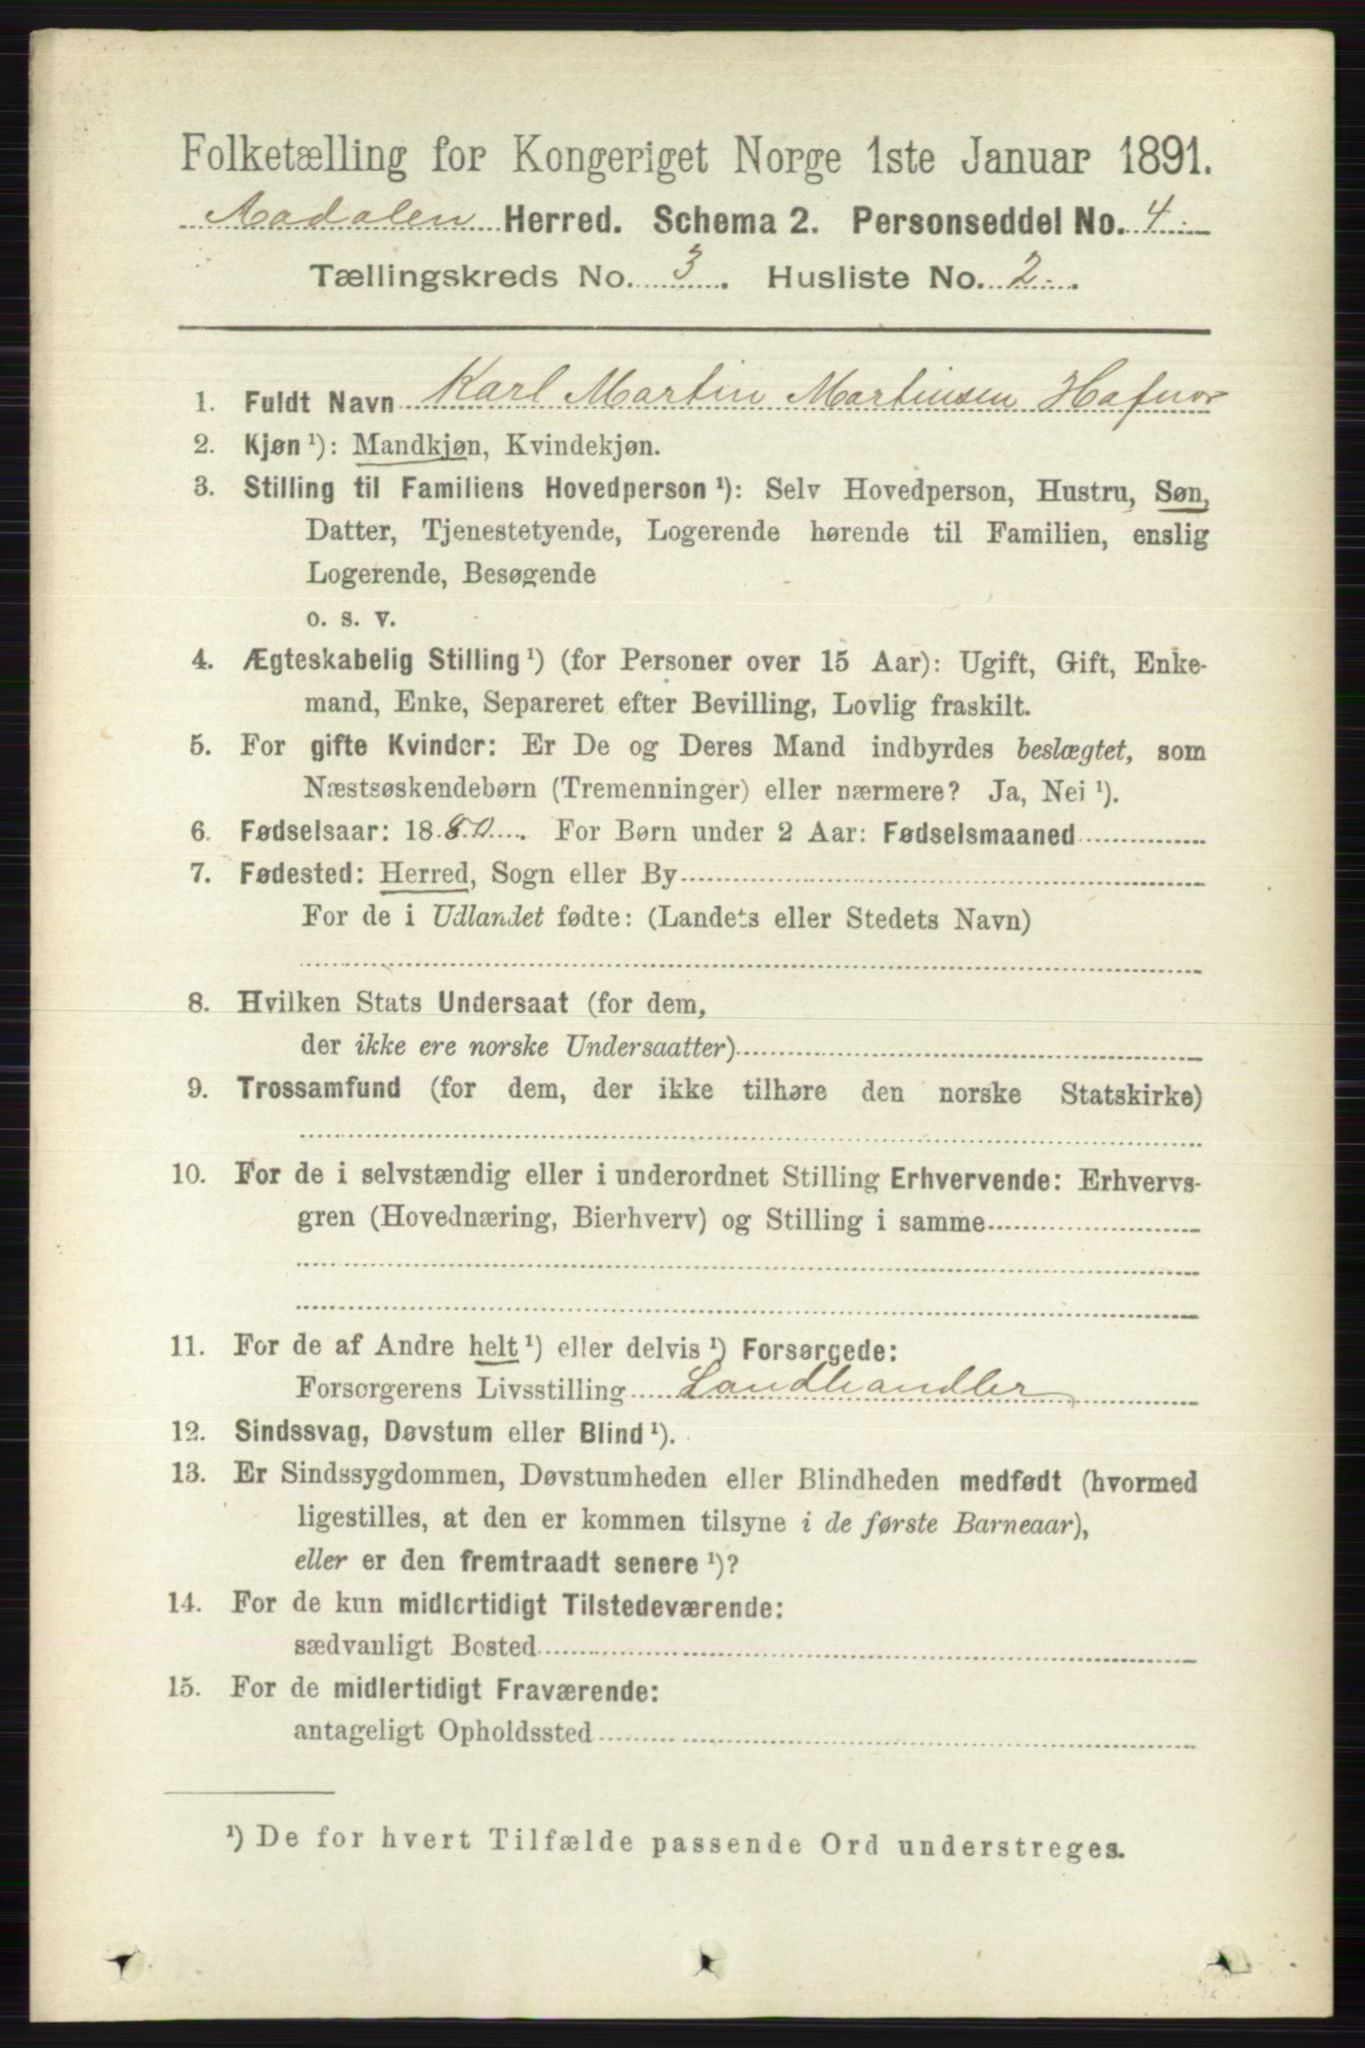 Folketælling for Kongeriget Norge 1ste Januar 1891.
Aadalen Herred. Schema 2. Personseddel No. 4.
Tællingskreds No. 3. Husliste No. 2.
1. Fuldt Navn Karl Martin Martinsen Hafnor
2. Kjøn ¹): Mandkjøn, Kvindekjøn.
3. Stilling til Familiens Hovedperson ¹): Selv Hovedperson, Hustru, Søn,
Datter, Tjenestetyende, Logerende hørende til Familien, enslig
Logerende, Besøgende
o. s. v.
4. Ægteskabelig Stilling ¹) (for Personer over 15 Aar): Ugift, Gift, Enke-
mand, Enke, Separeret efter Bevilling, Lovlig fraskilt.
5. For gifte Kvinder: Er De og Deres Mand indbyrdes beslægtet, som
Næstsøskendebørn (Tremenninger) eller nærmere? Ja, Nei ¹).
6. Fødselsaar: 1880. For Børn under 2 Aar: Fødselsmaaned
7. Fødested: Herred, Sogn eller By
For de i Udlandet fødte: (Landets eller Stedets Navn)
8. Hvilken Stats Undersaat (for dem,
der ikke ere norske Undersaatter)
9. Trossamfund (for dem, der ikke tilhøre den norske Statskirke)
10. For de i selvstændig eller i underordnet Stilling Erhvervende: Erhvervs-
gren (Hovednæring, Bierhverv) og Stilling i samme
11. For de af Andre helt ¹) eller delvis ¹) Forsørgede:
Forsørgerens Livsstilling Landhandler
12. Sindssvag, Døvstum eller Blind ¹).
13. Er Sindssygdommen, Døvstumheden eller Blindheden medfødt (hvormed
ligestilles, at den er kommen tilsyne i de første Barneaar),
eller er den fremtraadt senere ¹)?
14. For de kun midlertidigt Tilstedeværende:
sædvanligt Bosted
15. For de midlertidigt Fraværende:
antageligt Opholdssted
¹) De for hvert Tilfælde passende Ord understreges.